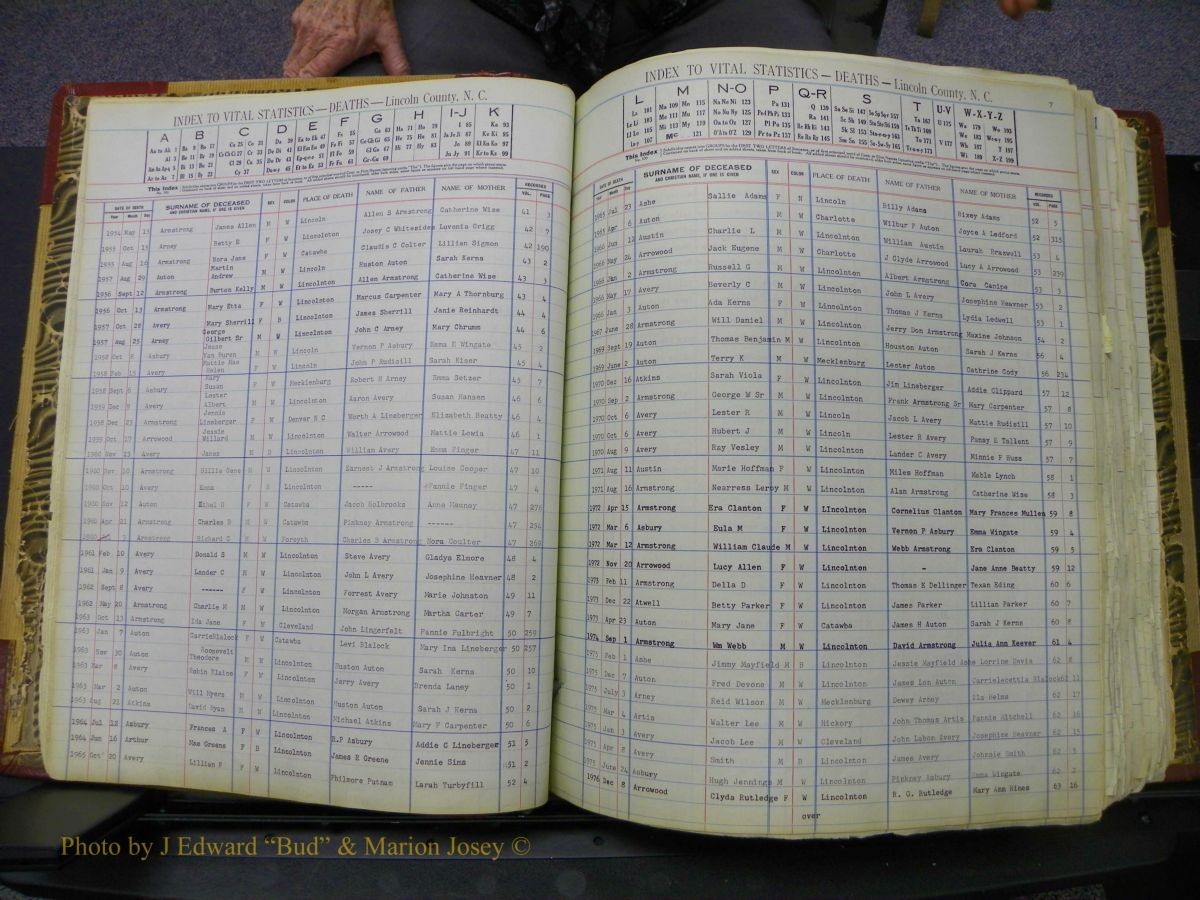 INDEX TO VITAL STATISTICS — DEATHS — Lincoln County, N. C.
A B C D E F G H I-J K
SURNAME OF DECEASED
AND CHRISTIAN NAME, IF ONE IS GIVEN
DATE OF DEATH SEX COLOR PLACE OF DEATH NAME OF FATHER NAME OF MOTHER RECORDED
Year Month Day VOL. PAGE
1954 May 13 Armstrong James Allen M W Lincoln Allen S Armstrong Catherine Wise 41 3
1955 Oct 15 Arney Betty E F W Lincolnton Josey C Whitesides Luvenia Grigg 42 7
1955 Aug 16 Armstrong Nora Jane F W Catawba Claudis C Colter Lillian Sigmon 42 190
1957 Aug 29 Auton Martin Andrew M W Lincoln Huston Auton Sarah Kerns 43 2
1956 Sept 12 Armstrong Burton Kelly M W Lincolnton Allen Armstrong Catherine Wise 43
1956 Oct 13 Armstrong Mary Etta F W Lincolnton Marcus Carpenter Mary A Thornburg 43 4
1957 Oct 28 Avery Mary Sherrill F B Lincolnton James Sherrill Janie Reinhardt 44 4
1957 Aug 25 Arney George Gilbert Sr M W Lincolnton John C Arney Mary Chrumm 44 6
1958 Oct 8 Asbury Jesse Van Buren M W Lincoln Vernon P Asbury Emma E Wingate 45 2
1958 Feb 15 Avery Mattie Mae Helen F W Lincoln John P Rudisill Sarah Kiser 45 4
1958 Sept 6 Asbury Mary Susan F W Mecklenburg Robert H Arney Emma Setzer 45 7
1959 Dec 9 Avery Lester Albert M W Lincolnton Aaron Avery Susan Hansen 46 6
1958 Dec 23 Armstrong Jennie Lineberger F W Denver N C Worth A Lineberger Elizabeth Beatty 46 4
1959 Oct 17 Arrowood Jessie Willard M W Lincolnton Walter Arrowood Mattie Lewis 46 1
1960 Nov 23 Avery James M B Lincolnton William Avery Emma Finger 47 11
1960 Nov 10 Armstrong Billie Gene M W Lincolnton Earnest J Armstrong Louise Cooper 47 10
1960 Oct 10 Avery Emma F B Lincolnton ----- Fannie Finger 47 4
1960 Nov 12 Auton Ethel H F W Catawba Jacob Holbrooks Anna Haunay 47 276
1960 Apr 21 Armstrong Charles B M W Catawba Pinkney Armstrong ------ 47 254
Armstrong Richard C M W Forsyth Charles B Armstrong Nora Coulter 47 269
1961 Feb 10 Avery Donald S M W Lincolnton Steve Avery Gladys Elmore 48 4
1961 Jan 9 Avery Lander C M W Lincolnton John L Avery Josephine Heavner 48 2
1962 Sept 8 Avery ------ F W Lincolnton Forrest Avery Marie Johnston 49 11
1962 May 20 Armstrong Charlie M M W Lincolnton Morgan Armstrong Martha Carter 49 7
1963 Oct 13 Armstrong Ida Jane F W Cleveland John Lingerfelt Fannie Fulbright 50 259
1963 Jan 7 Auton CarrieBlalock F W Catawba Levi Blalock Mary Ina Lineberger 50 257
1963 Nov 30 Auton Roosevelt Theodore Huston Auton Sarah Kerns 50 10
1963 Mar 8 Avery Robin Elaine F W Lincolnton Jerry Avery Brenda Laney 50 1
1963 Mar 2 Auton Will Myers M W Lincolnton Huston Auton Sarah J Kerns 50 2
1963 Aug 21 Atkins David Ryan M W Lincolnton Michael Atkins Mary F Carpenter 50 6
1964 Jul 12 Asbury Frances A F W Lincolnton R.P Asbury Addie C Lineberger 51 5
1964 Jun 16 Arthur Mae Greene F B Lincolnton James R Greene Jennie Sims 51 2
1965 Oct 20 Avery Lillian F F W Lincolnton Philmore Putnam Larah Turbyfill 52 4
INDEX TO VITAL STATISTICS — DEATHS — Lincoln County, N. C.
7
L M N-O P Q-R S T U-V W-X-Y-Z
DATE OF DEATH SURNAME OF DECEASED SEX COLOR PLACE OF DEATH NAME OF FATHER NAME OF MOTHER RECORDED
AND CHRISTIAN NAME, IF ONE IS GIVEN
Year Month Day VOL. PAGE
1965 Jul 23 Ashe Sallie Adams F N Lincoln Billy Adams Bixey Adams 52 5
1965 Apr 6 Auton M W Charlotte Wilbur F Auton Joyce A Ledford 52 315
1966 Jun 12 Austin Charlie L M W Lincolnton William Austin Laurah Braswell 53 4
1966 May 24 Arrowood Jack Eugene M W Charlotte J Clyde Arrowood Lucy A Arrowood 53 239
1968 Jan 2 Armstrong Russell G M W Lincolnton Albert Armstrong Cora Canipe 53 3
1966 May 17 Avery Beverly C M W Lincolnton John L Avery Josephine Heavner 53 2
1966 Jan 3 Auton Ada Kerns F W Lincolnton Thomas J Kerns Lydia Ledwell 53 1
1967 June 28 Armstrong Will Daniel M W Lincolnton Jerry Don Armstrong Maxine Johnson 54 2
1969 Sept 19 Auton Thomas Benjamin M W Lincolnton Houston Auton Sarah J Kerns 56 4
1969 June 2 Auton Terry K M W Mecklenburg Lester Auton Cathrine Cody 56 234
1970 Dec 16 Atkins Sarah Viola F W Lincolnton Jim Lineberger Addie Clippard 57 12
1970 Sep 2 Armstrong George W Sr M W Lincolnton Frank Armstrong Sr Mary Carpenter 57 8
1970 Oct 6 Avery Lester R M W Lincoln Jacob L Avery Mattie Rudisill 57 10
1970 Oct 6 Avery Hubert J M W Lincoln Lester R Avery Pansy E Tallent 57 9
1970 Aug 9 Avery Ray Vesley M W Lincolnton Lander C Avery Minnie F Huss 57 7
1971 Aug 11 Austin Marie Hoffman F W Lincolnton Miles Hoffman Mable Lynch 58 1
1971 Aug 16 Armstrong Nearress Leroy M W Lincolnton Alan Armstrong Catherine Wise 58 3
1972 Apr 15 Armstrong Era Clanton F W Lincolnton Cornelius Clanton Mary Frances Mullen 59 8
1972 Mar 6 Asbury Eula M F W Lincolnton Vernon P Asbury Emma Wingate 59 4
1972 Mar 12 Armstrong William Claude M W Lincolnton Webb Armstrong Era Clanton 59 5
1972 Nov 20 Arrowood Lucy Allen F W Lincolnton - Jane Anne Beatty 59 12
1973 Feb 11 Armstrong Della D F W Lincolnton Thomas E Dellinger Texan Eding 60 6
1973 Dec 22 Atwell Betty Parker F W Lincolnton James Parker Lillian Parker 60 7
1973 Apr 23 Auton Mary Jane F W Catawba James H Auton Sarah J Kerns 60 8
1974 Sep 1 Armstrong Wm Webb M W Lincolnton David Armstrong Julia Ann Keever 61 4
1975 Feb 1 Ashe Jimmy Mayfield M B Lincoln Jessie Mayfield Ashe Lorrine Davis 62 8
1975 Dec 7 Auton Fred Devone M W Lincolnton James Lon Auton Carrielecettia Blalock 62 11
1975 July 3 Arney Reid Wilson M W Mecklenburg Dewey Arney Ila Helms 62 17
1975 Mar 4 Artis Walter Lee M W Hickory John Thomas Artis Fannie Mitchell 62 16
1975 Jan 3 Avery Jacob Lee M W Cleveland John Labon Avery Josephine Heavner 62 15
1975 Apr 8 Avery Smith M B Lincolnton James Avery Johnsie Smith 62 5
1975 June 24 Asbury Hugh Jennings M W Lincolnton Pinkney Asbury Emma Wingate 62 2
1976 Dec 8 Arrowood Clyda Rutledge F W Lincolnton R. G. Rutledge Mary Ann Hines 63 16
over
Photo by J Edward “Bud” & Marion Josey ©